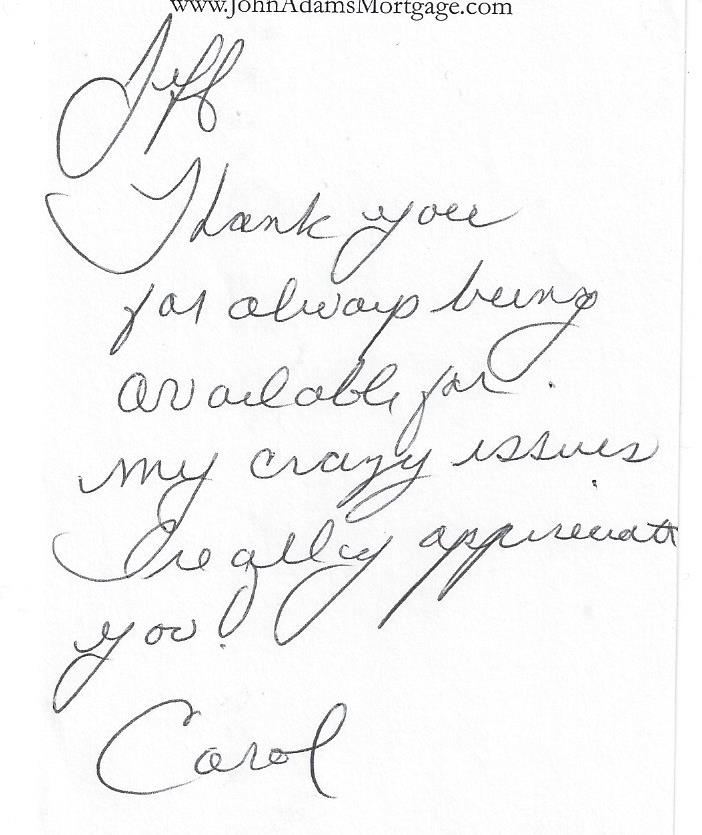 www.JohnAdamsMortgage.com
Jeff
Thank you
for always being
available for
my crazy issues
I really appreciate
you!
Carol